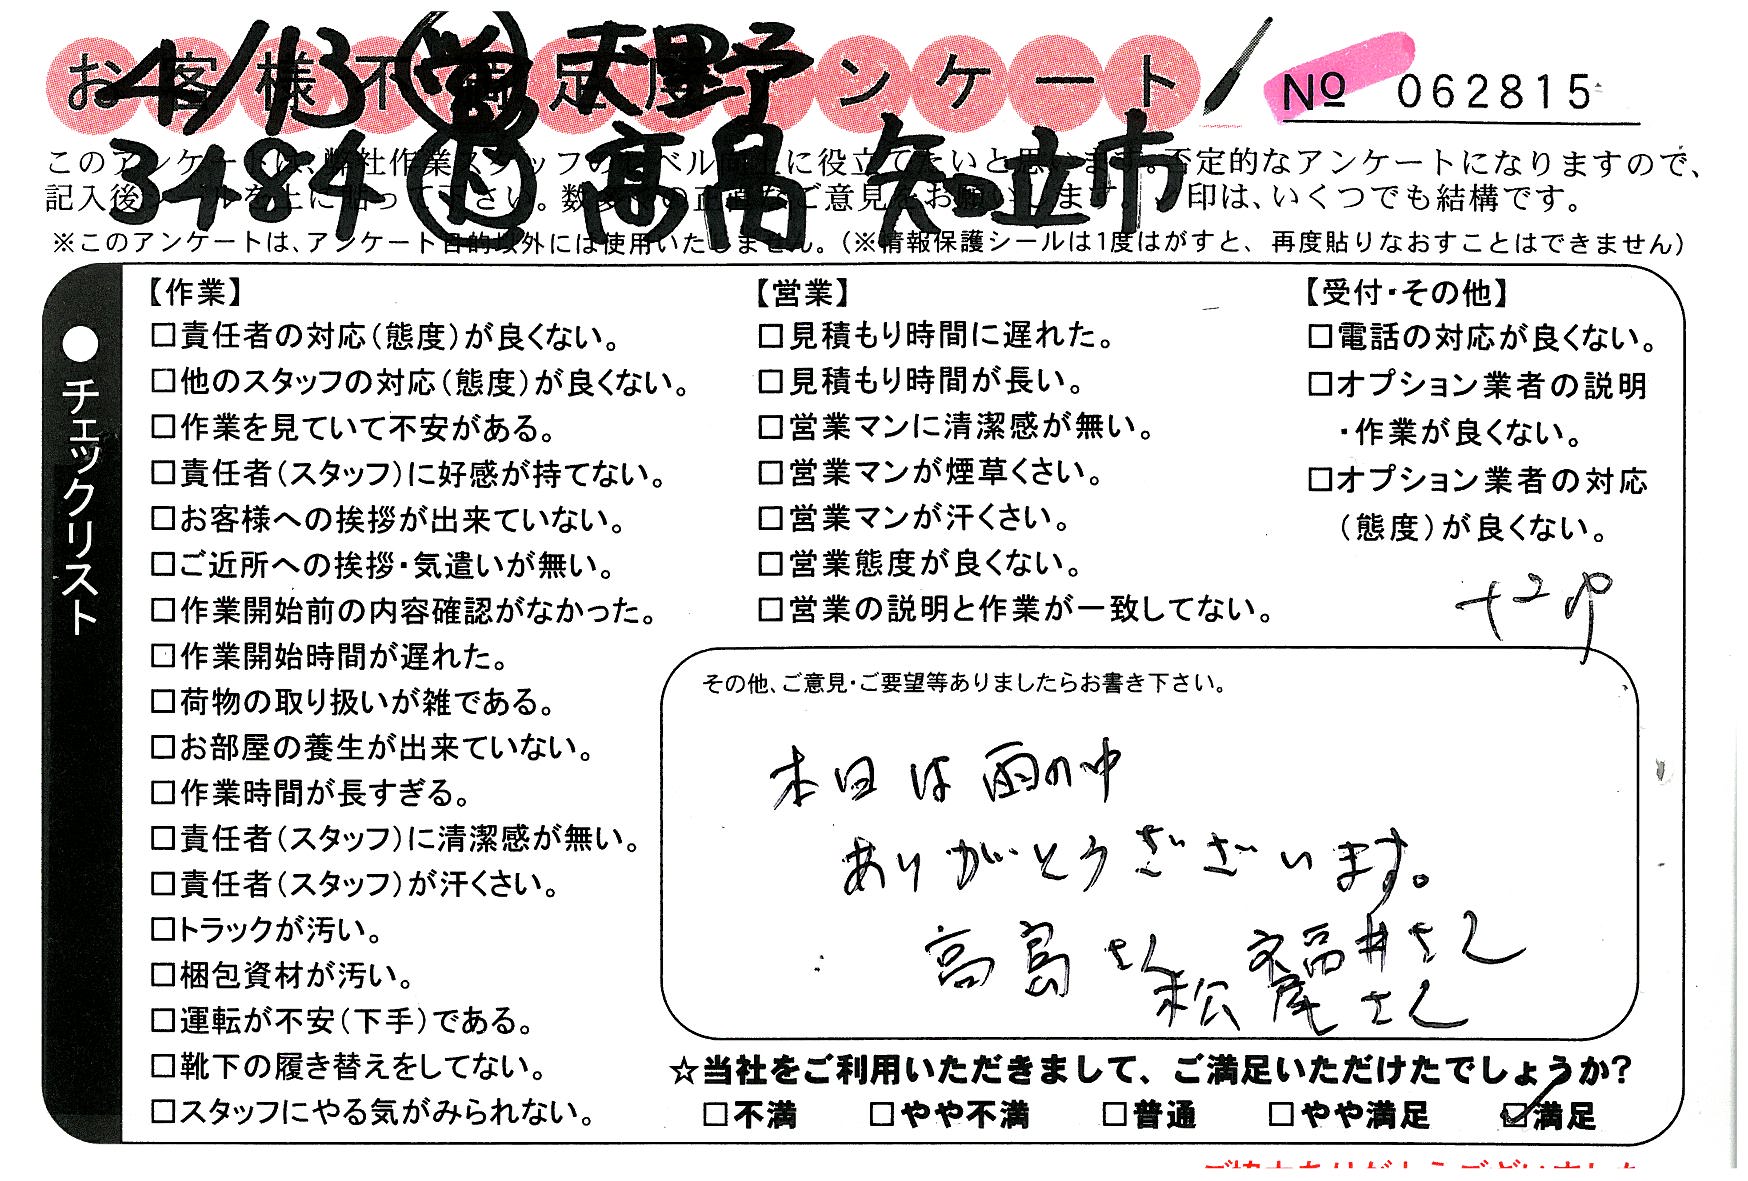 お客様不満足度アンケート
4/13 営 天野
№ 062815
3484 下 高畠 知立市
このアンケートは、弊社作業スタッフのレベル向上に役立てたいと思います。否定的なアンケートになりますので、
記入後シールを上に貼って下さい。数多くの正直なご意見をお願いします。✓印は、いくつでも結構です。
※このアンケートは、アンケート目的以外には使用いたしません。(※情報保護シールは1度はがすと、再度貼りなおすことはできません)
●チェックリスト
【作業】
□責任者の対応(態度)が良くない。
□他のスタッフの対応(態度)が良くない。
□作業を見ていて不安がある。
□責任者(スタッフ)に好感が持てない。
□お客様への挨拶が出来ていない。
□ご近所への挨拶・気遣いが無い。
□作業開始前の内容確認がなかった。
□作業開始時間が遅れた。
□荷物の取り扱いが雑である。
□お部屋の養生が出来ていない。
□作業時間が長すぎる。
□責任者(スタッフ)に清潔感が無い。
□責任者(スタッフ)が汗くさい。
□トラックが汚い。
□梱包資材が汚い。
□運転が不安(下手)である。
□靴下の履き替えをしてない。
□スタッフにやる気がみられない。
【営業】
□見積もり時間に遅れた。
□見積もり時間が長い。
□営業マンに清潔感が無い。
□営業マンが煙草くさい。
□営業マンが汗くさい。
□営業態度が良くない。
□営業の説明と作業が一致してない。
【受付・その他】
□電話の対応が良くない。
□オプション業者の説明
・作業が良くない。
□オプション業者の対応
(態度)が良くない。
+2P
その他、ご意見・ご要望等ありましたらお書き下さい。
本日は雨の中
ありがとうございます。
高畠さん 福井さん
松尾さん
☆当社をご利用いただきまして、ご満足いただけたでしょうか?
□不満 □やや不満 □普通 □やや満足 ☑満足